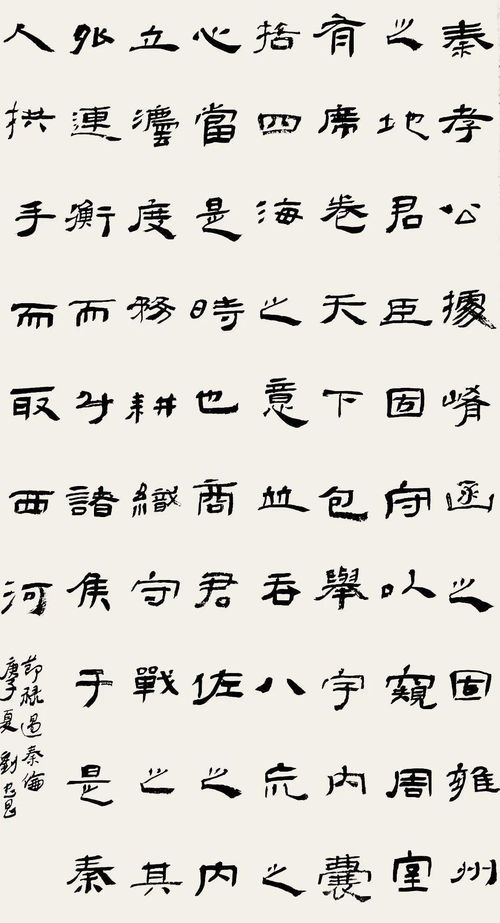 秦孝公據崤函之固雍州
之地君臣固守以窺周室
有席卷天下包舉宇內囊
括四海之意並吞八荒之
心當是時也商君佐之內
立灋度務耕織守戰之其
外連衡而斗諸侯于是秦
人拱手而取西河
節祿過秦倫
庚子夏 劉